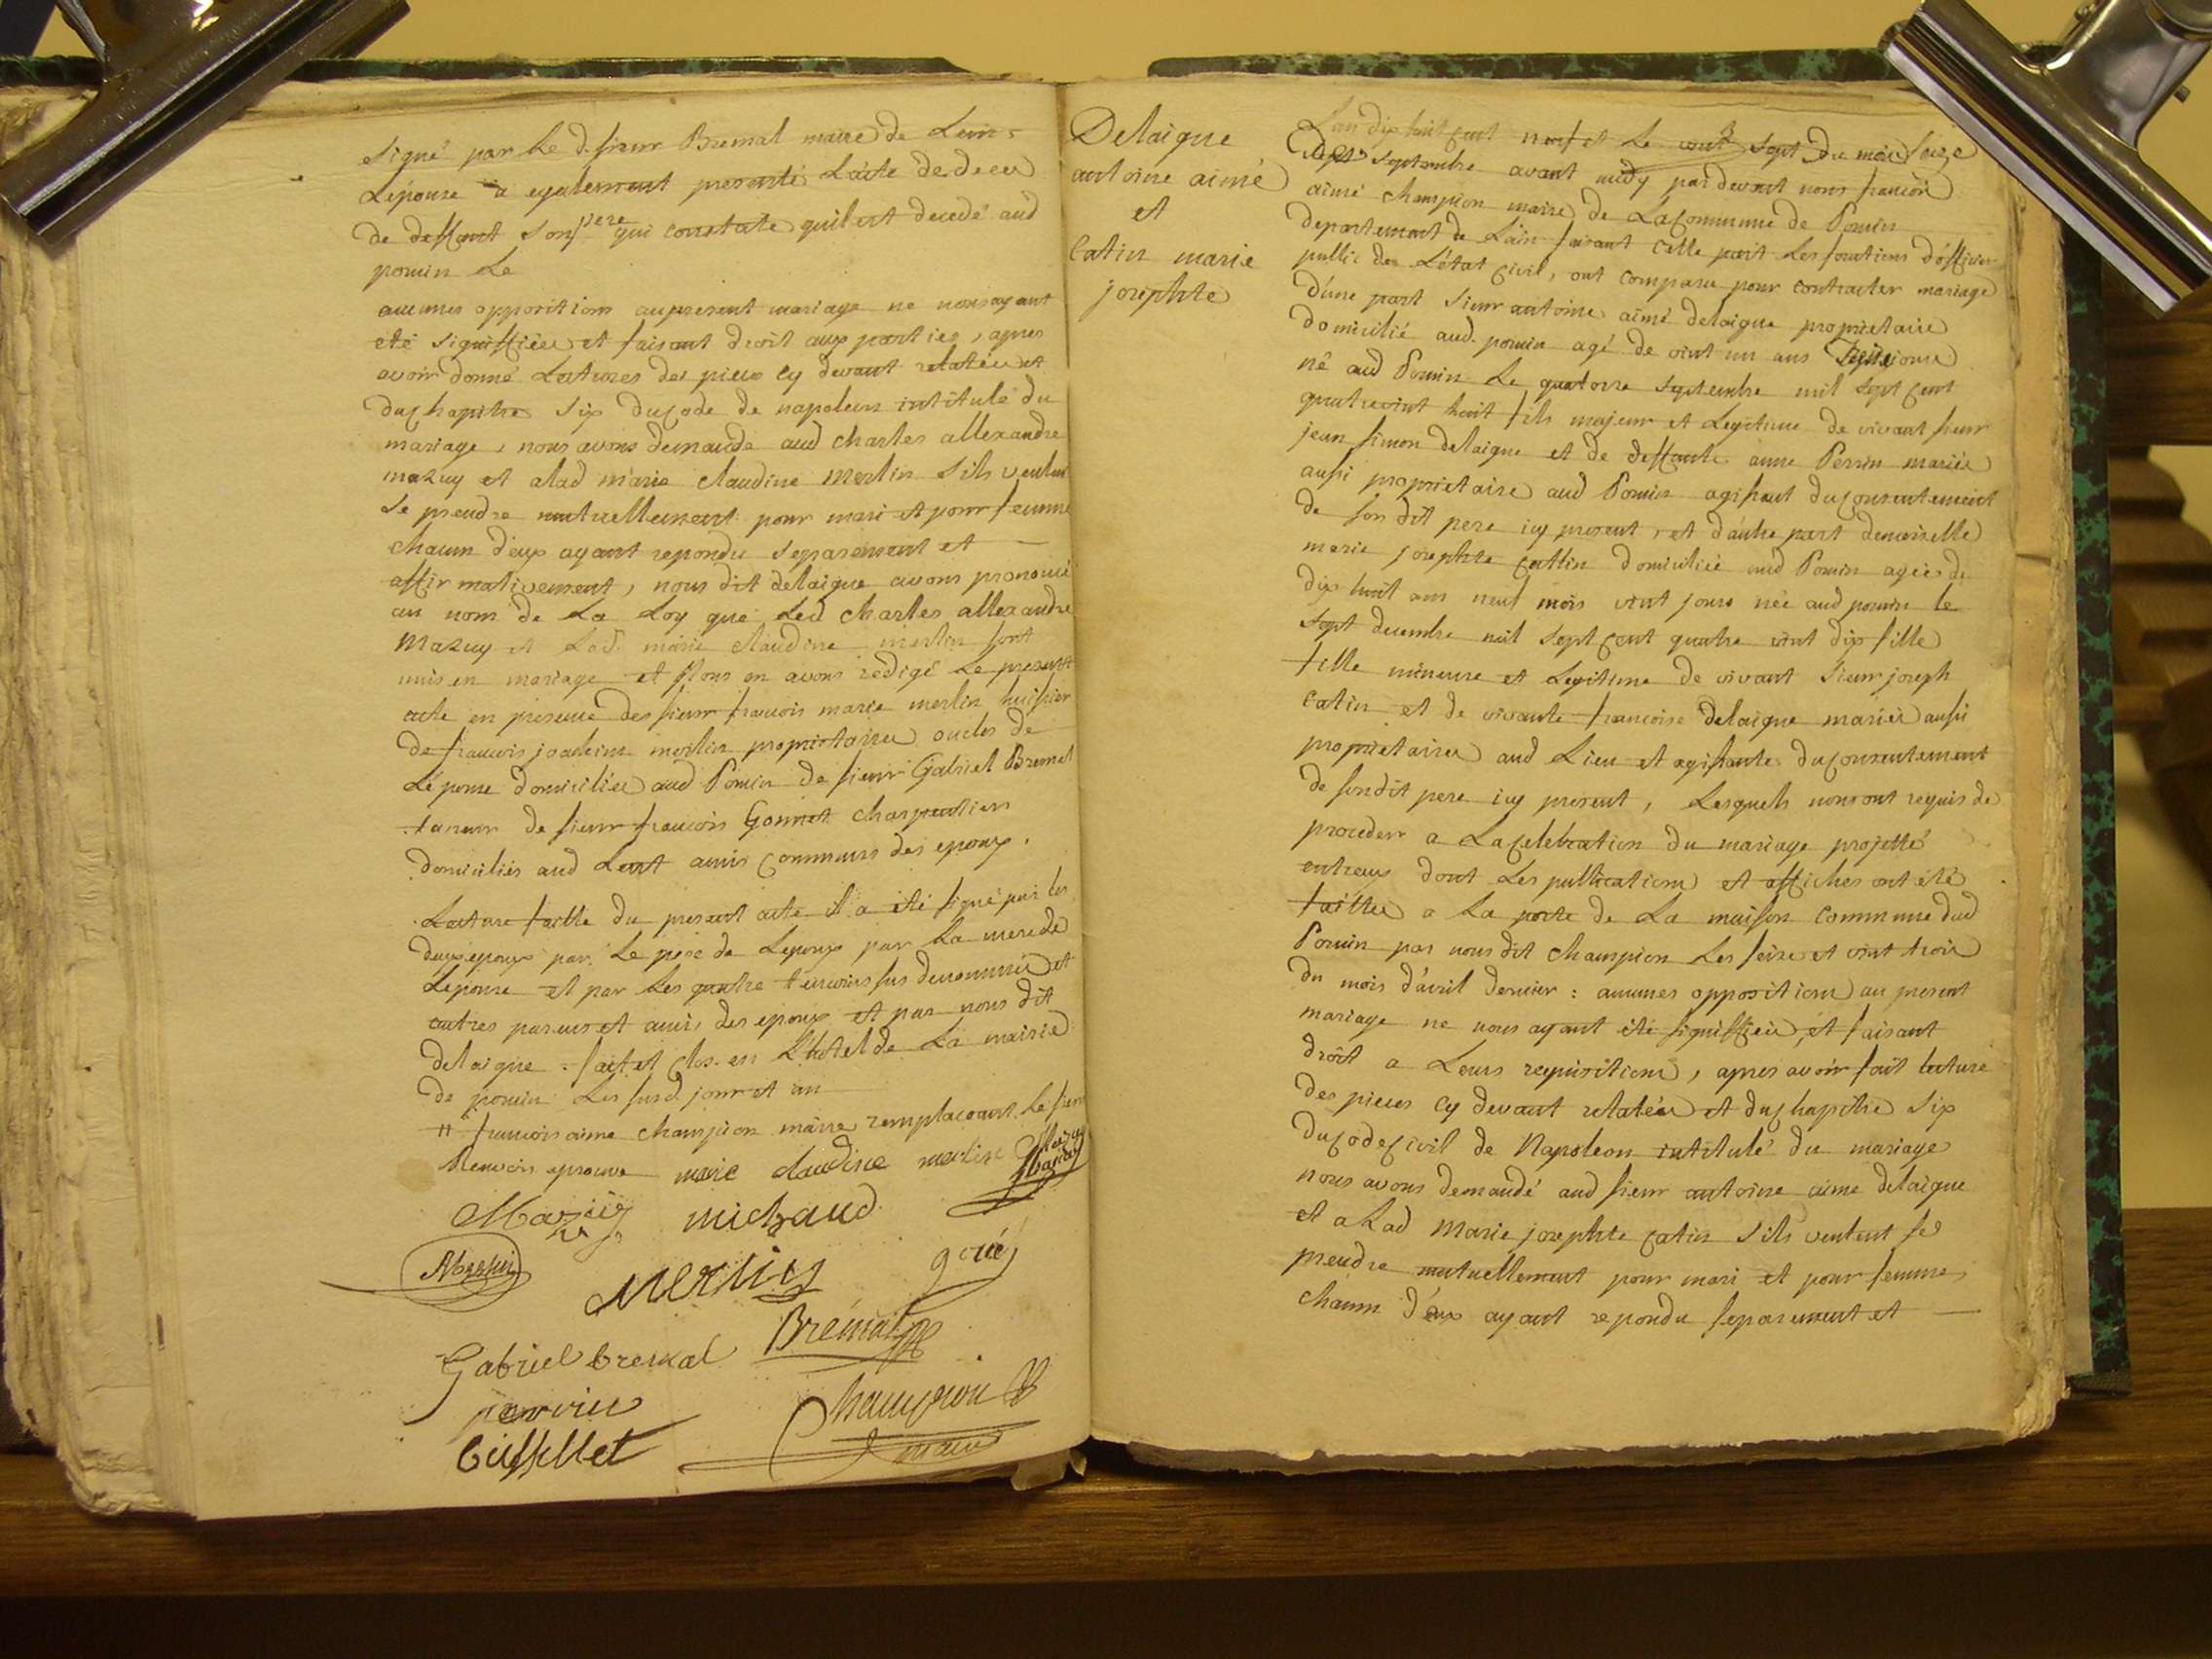 signé par le d. sieur Bremal maire de Lent.
L'épouse a egalement presenté Lacte de deces
de deffunt son pere qui constate quil est decedé aud
poncin Le
aucunes oppositions au present mariage ne nous ayant
eté signiffiées et faisant droit aux parties, apres
avoir donné Lectures des pieces cy devant relatées et
du chapitre six du code de napoleon intitulé du
mariage, nous avons demandé aud charles allexandre
mazuy et alad marie claudine merlin s'ils veulent
se prendre mutuellement pour mari et pour femme
chacun d'eux ayant repondu separement et —
affirmativement, nous dit delaigue avons prononcé
au nom de La Loy que Led charles allexandre
Mazuy et Lad. marie claudine merlin sont
unis en mariage et Nous en avons redigé Le present
acte en presence des sieur francois marie merlin huissier
de francois joachim merlin proprietaires oncles de
L'épouse domiciliés aud Poncin de sieur Gabriel Bremal
taneur de sieur francois Gonnet charpentier
domiciliés aud Lent amis communs des epoux.
Lecture faitte du present acte il a eté signé par les
deux epoux par Le pere de Lepoux par La mere de
Lepouse et par Les quatre temoins sus denommés et
autres parens et amis des epoux et par nous dit
delaigue. fait et clos en L'hotel de La mairie
de poncin Les susd. jour et an
francois aime champion maire remplacant Le sieur
Renvois aprouvé marie claudine merlin
Mazuy michaud
merlin goné
Bremal
Gabriel bremal
perrin Champion
Cuffillet maire
Delaigue
antoine aimé
et
Catin marie
josephte
L'an dix huit cent neuf et Le vint sept du mois seize
Sept. septembre avant midy pardevant nous francois
aimé champion maire de La Commune de Poncin
departement de Lain faisant cette part Les fonctions d'officier
public de L'état Civil, ont comparu pour contracter mariage
d'une part sieur antoine aimé delaigue proprietaire
domicilié aud. poncin agé de vint un ans
né aud Poncin Le quatorze septembre mil sept cent
quatrevint huit fils majeur et Legitime de vivant sieur
jean simon delaigue et de deffunte anne Perrin mariés
aussi proprietaire aud Poncin agissant du consentement
de son dit pere icy present, et d'autre part demoiselle
marie josephte Cattin domiciliée aud Poncin agée de
dix huit ans neuf mois vint jours née aud poncin le
sept decembre mil sept cent quatre vint dix fille
fille mineure et Legitime de vivant sieur joseph
catin et de vivante francoise delaigue mariés aussi
proprietaires aud Lieu et agissante du consentement
de son dit pere icy present, Lesquels nous ont requis de
proceder a La Celebration du mariage projetté
entreux dont Les publications et affiches ont été
faittes a La porte de La maison commune dud
Poncin par nous dit champion Les seize et vint trois
du mois d'avril dernier: aucunes oppositions au present
mariage ne nous ayant été signiffiées, et faisant
droit a Leurs requisitions, apres avoir fait lecture
des pieces cy devant relatées et du chapitre six
du code civil de Napoleon intitulé du mariage
nous avons demandé aud sieur antoine aimé delaigue
et a Lad Marie josephte catin s'ils veulent se
prendre mutuellement pour mari et pour femme,
chacun d'eux ayant repondu separement et —